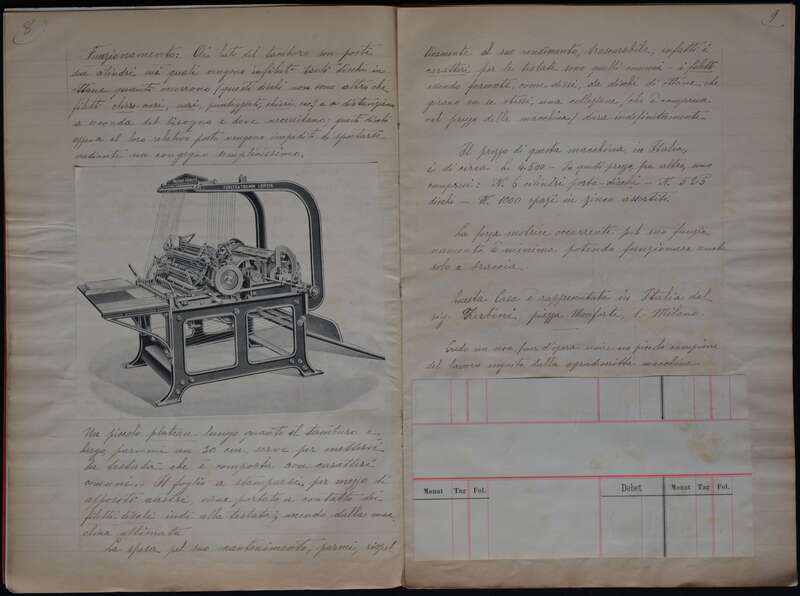 8
Funzionamento: Ai lati del tamburo son posti
sei cilindri sui quali vengono infilati tanti dischi in
ottone quanti occorrono (questi dischi non sono altro che
filetti chiaro-neri, neri, punteggiati, chiari, ecc.) e a distanziarsi
a seconda del bisogno e dove necessitano; questi dischi
appena al loro relativo posto vengono impediti di spostarsi
mediante un congegno semplicissimo.
FÖRSTE & TROMM LEIPZIG
Un piccolo plateau lungo quanto il tamburo e
largo parmmi un 30 cm. serve per mettervi
la testata che è composta con caratteri
comuni. Il foglio a stamparsi per mezzo di
appositi nastri viene portato a contatto dei
filetti-dischi indi alla testata; uscendo dalla mac
china ultimato
La spesa pel suo mantenimento, parmi, rispet
9
tivamente al suo rendimento, trascurabile; infatti i
caratteri per le testate sono quelli comuni - i filetti
essendo formati, come dissi, da dischi di ottone che
girano su se stessi, una collezione (che è compresa
nel prezzo della macchina) dura indefinitamente.
Il prezzo di questa macchina in Italia,
è di circa L. 4.500 - In quel prezzo, fra altro, sono
compresi: N. 6 cilindri porta-dischi - N. 525
dischi - N. 1000 spazi in zinco assortiti.
La forza motrice occorrente pel suo funzio
namento è minima potendo funzionare anche
solo a braccia.
Questa Casa è rappresentata in Italia dal
sig. Zerbini, piazza Monforte, 1. Milano.
Credo un non fuor d'opera unire un piccolo campione
del lavoro eseguito dalla sopradescritta macchina.
Monat Tag Fol. Debet Monat Tag Fol.